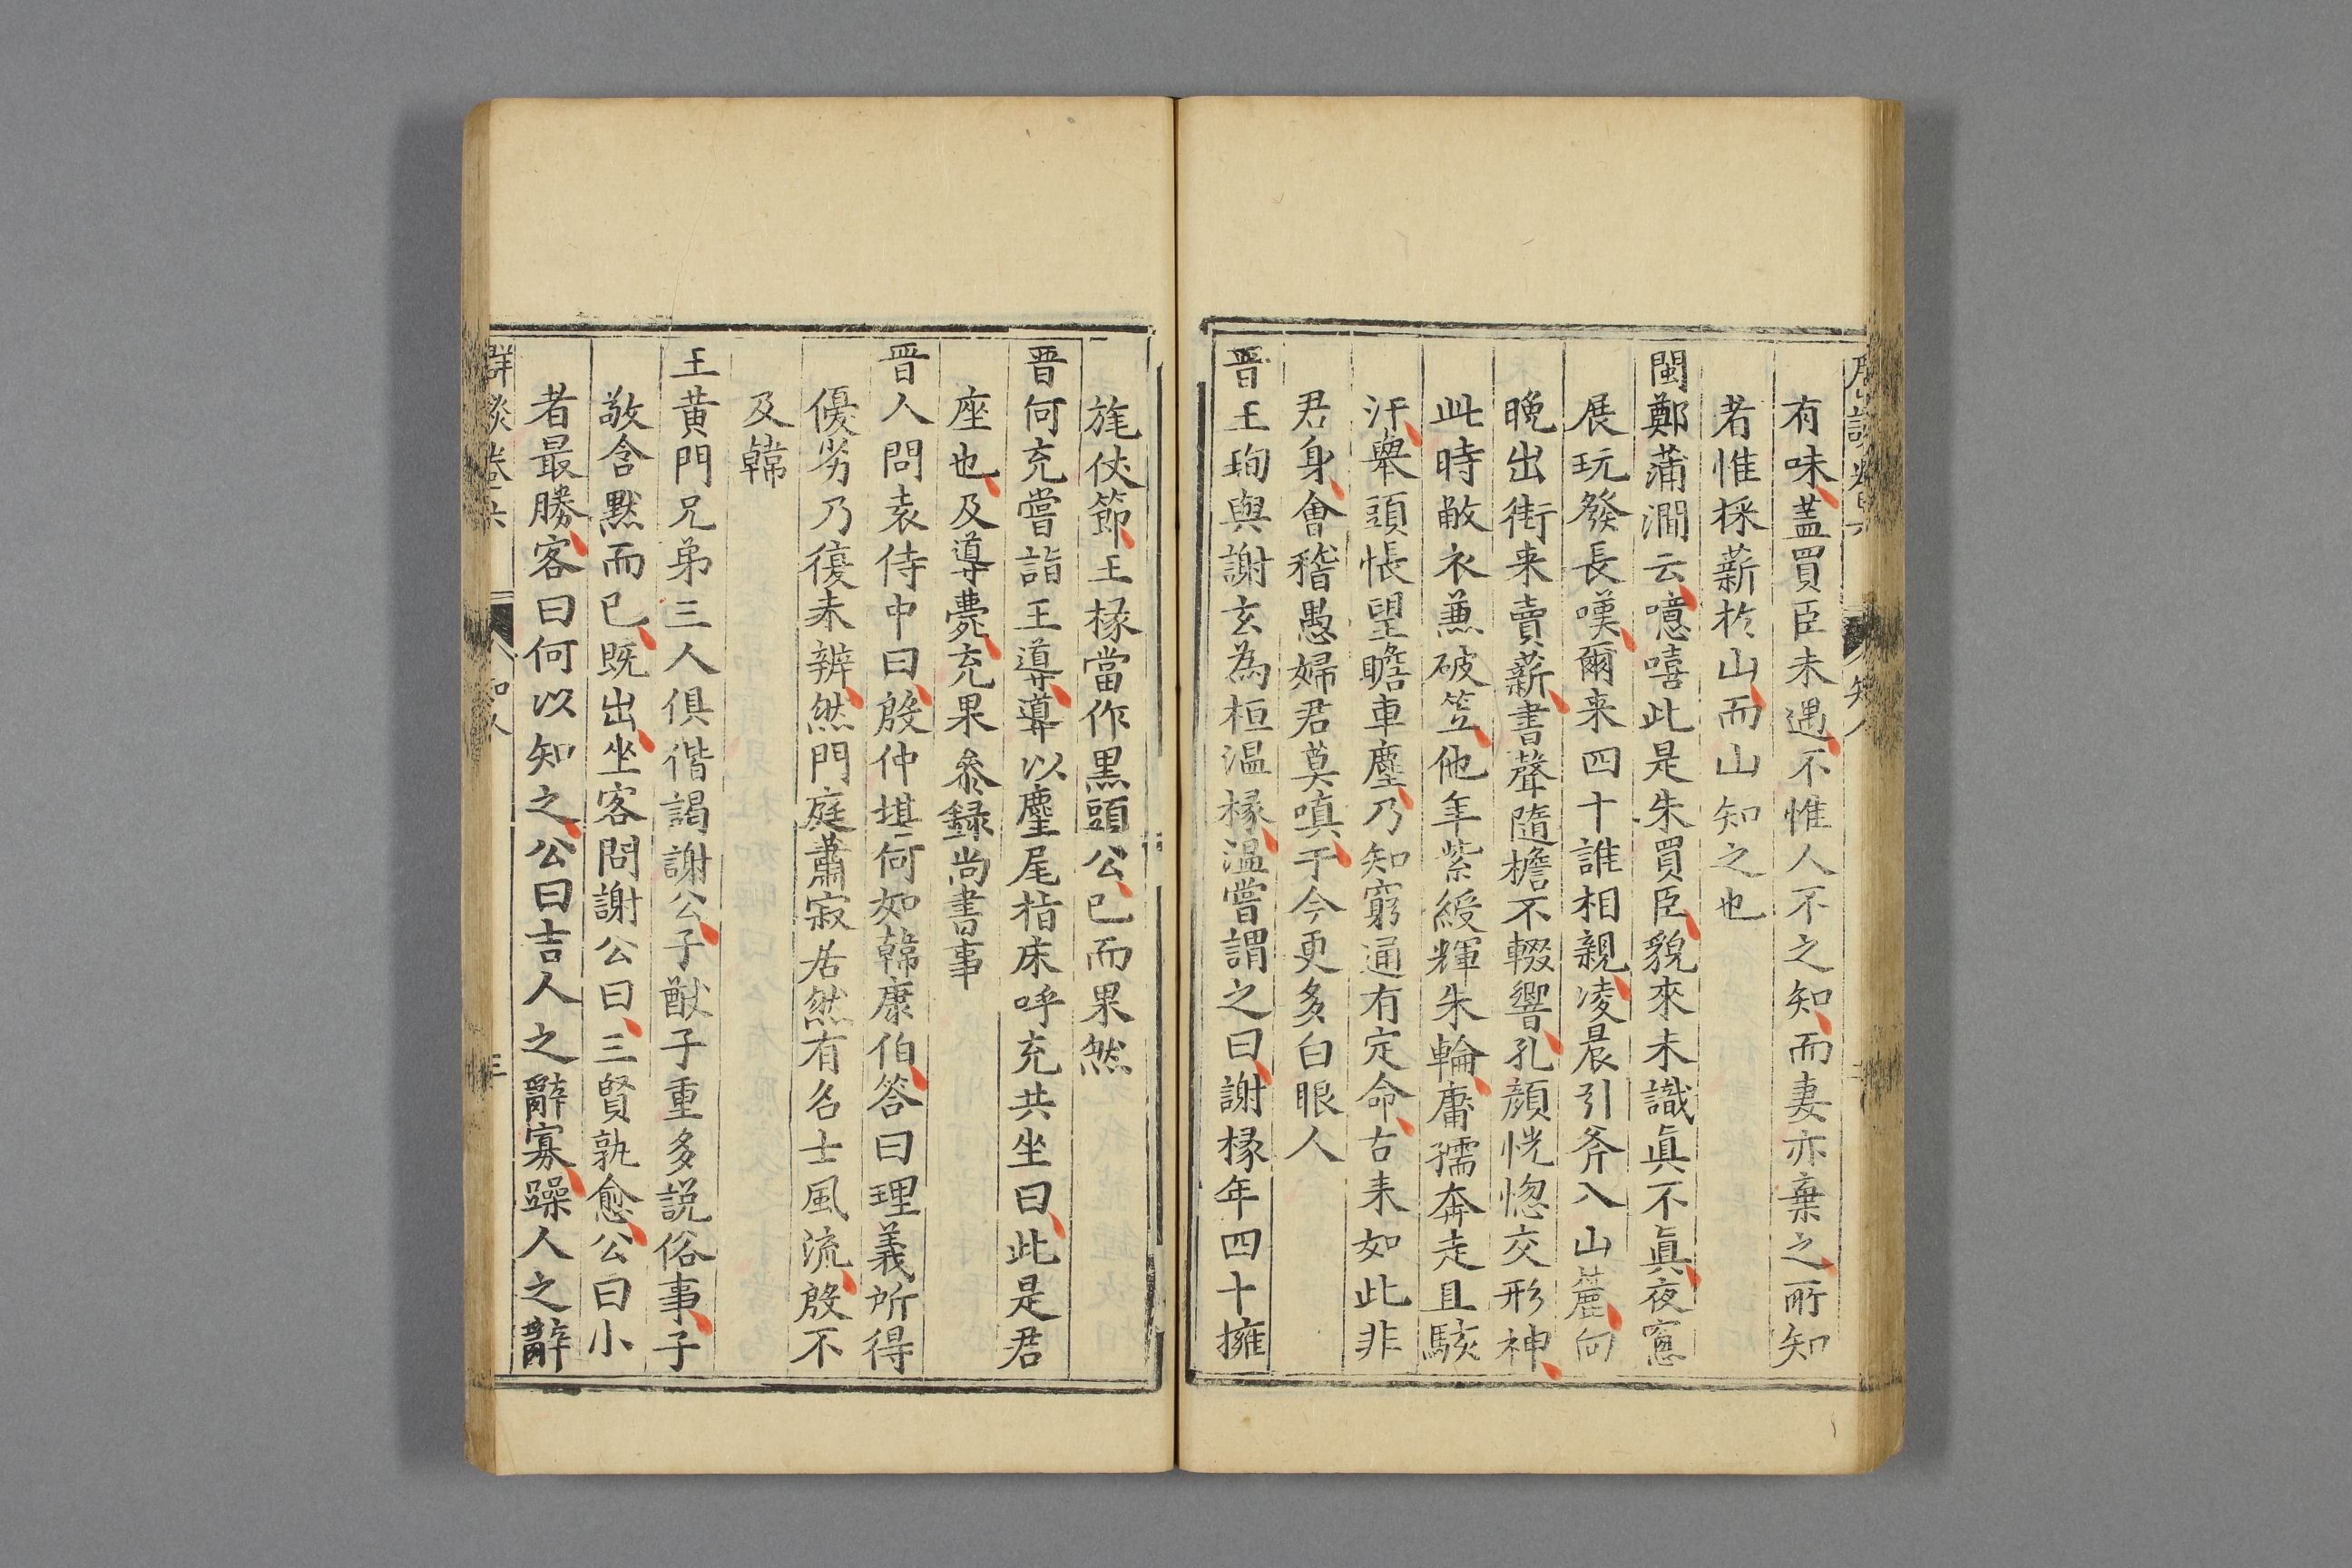 有味蓋買臣未遇不惟人不之知而妻亦棄之所知
者惟採薪於山而山知之也
閩鄭蒲澗云噫嘻此是朱買臣貌來未識眞不眞夜窓
展玩發長嘆爾来四十誰相親凌晨引斧入山麓向
晚出街来賣薪書聲隨檐不輟響孔顔恍惚交形神
此時敝衣兼破笠他年紫綬輝朱輪庸孺奔走且駭
汗舉頭悵望瞻車塵乃知窮通有定命古来如此非
君身會稽愚婦君莫嗔于今更多白眼人
晋王珣與謝玄為桓温掾温嘗謂之曰謝掾年四十擁
旄仗節王掾當作黒頭公已而果然
晋何充嘗詣王導導以麈尾指床呼充共坐曰此是君
座也及導薨充果叅録尚書事
晋人問袁侍中曰殷仲堪何如韓康伯答曰理義所得
優劣乃復未辨然門庭蕭寂居然有名士風流殷不
及韓
王黄門兄弟三人俱偕謁謝公子猷子重多説俗事子
敬含黙而已既出坐客問謝公曰三賢孰愈公曰小
者最勝客曰何以知之公曰吉人之辭寡躁人之辭
群談卷六 知人 三